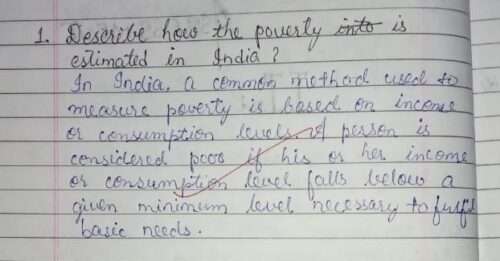 1. Describe how the poverty into is
estimated in India?
In India, a common method used to
measure poverty is based on income
or consumption levels. A person is
considered poor if his or her income
or consumption level falls below a
given minimum level necessary to fulfil
basic needs.